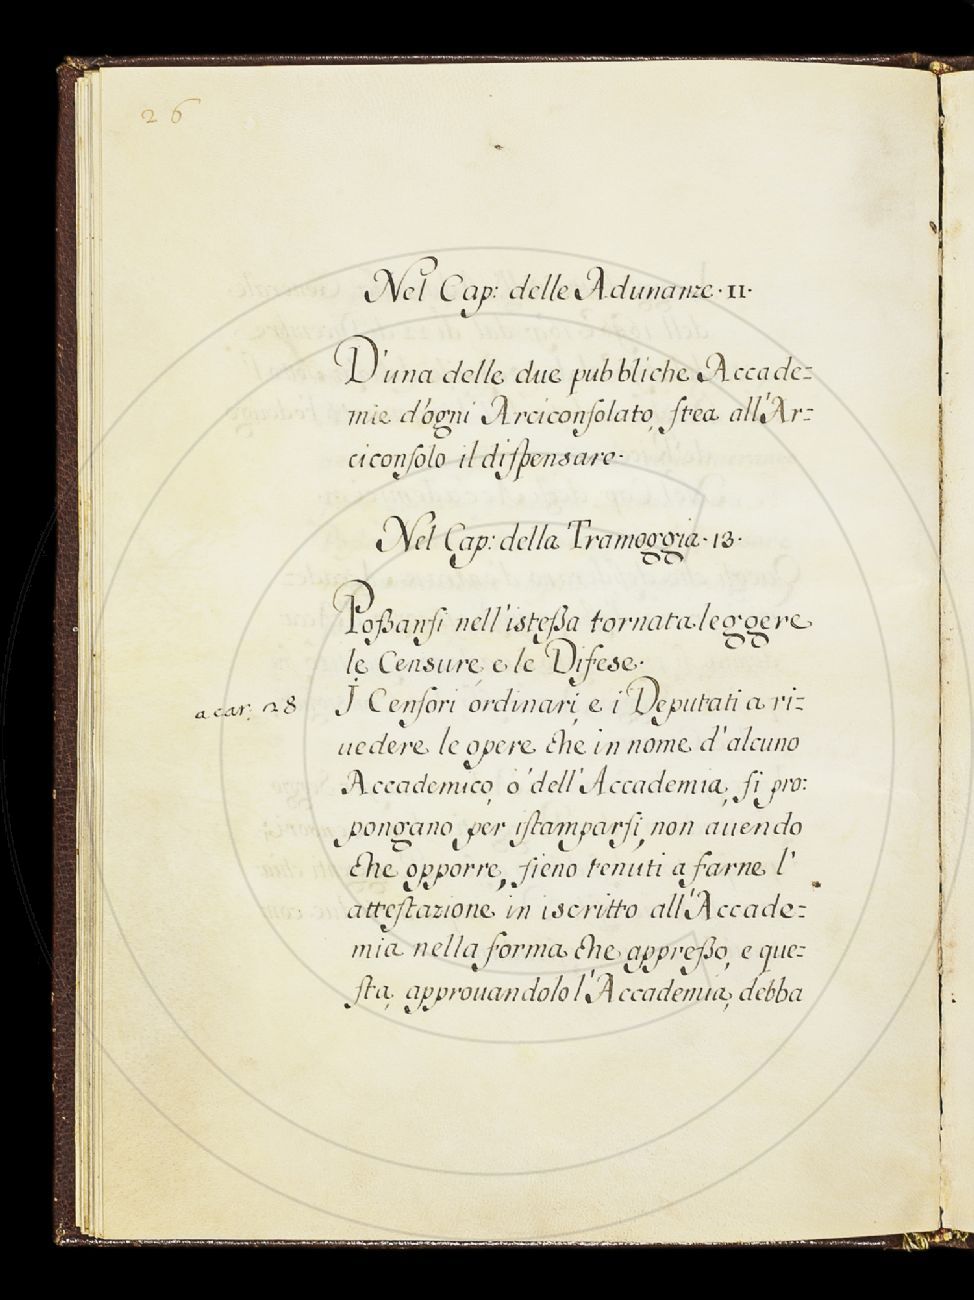 26
Nel Cap: delle Adunanze · II ·
D'una delle due pubbliche Accade=
mie d'ogni Arciconsolato, stea all'Ar=
ciconsolo il dispensare ·
Nel Cap: della Tramoggia · 13 ·
Poßansi nell'isteßa tornata leggere
le Censure, e le Difese ·
a car: 28
I Censori ordinari, e i Deputati a ri=
uedere le opere che in nome d'alcuno
Accademico, o dell'Accademia, si pro:
pongano per istamparsi, non auendo
che opporre, sieno tenuti a farne l'
attestazione in iscritto all'Accade=
mia nella forma che appreßo, e que=
sta, approuandolo l'Accademia, debba